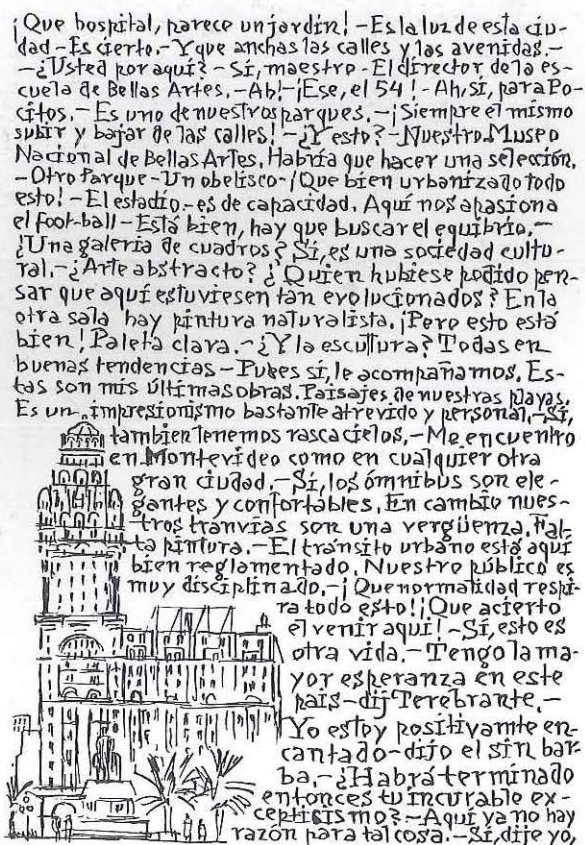 ¡Que hospital, parece un jardín! – Es la luz de esta ciu-
dad – Es cierto. – Y que anchas las calles y las avenidas. –
– ¿Usted por aquí? – Sí, maestro – El director de la es-
cuela de Bellas Artes. – Ah! – ¡Ese, el 54! – Ah, sí, para Po-
citos. – Es uno de nuestros parques. – ¡Siempre el mismo
subir y bajar de las calles! – ¿Y esto? – Nuestro Museo
Nacional de Bellas Artes. Habría que hacer una selección.
– Otro Parque – Un obelisco – ¡Que bien urbanizado todo
esto! – El estadio – es de capacidad. Aquí nos apasiona
el foot-ball – Está bien, hay que buscar el equibrio. –
¿Una galería de cuadros? Sí, es una sociedad cultu-
ral. – ¿Arte abstracto? ¿Quien hubiese podido pen-
sar que aquí estuviesen tan evolucionados? En la
otra sala hay pintura naturalista. ¡Pero esto está
bien! Paleta clara. – ¿Y la escultura? Todas en
buenas tendencias – Pues sí, le acompañamos. Es-
tas son mis últimas obras. Paisajes de nuestras playas.
Es un impresionismo bastante atrevido y personal. – Sí,
tambien tenemos rascacielos. – Me encuentro
en Montevideo como en cualquier otra
gran ciudad. – Sí, los ómnibus son ele-
gantes y confortables. En cambio nues-
tros tranvías son una vergüenza. Fal-
ta pintura. – El tránsito urbano está aquí
bien reglamentado. Nuestro público es
muy disciplinado. – ¡Que normalidad respi-
ra todo esto! ¡Que acierto
el venir aquí! – Sí, esto es
otra vida. – Tengo la ma-
yor esperanza en este
país – dij Terebrante. –
Yo estoy positivamte en-
cantado – dijo el sin bar-
ba. – ¿Habrá terminado
entonces tu incurable ex-
cepticismo? – Aquí ya no hay
razón para tal cosa. – Sí, dije yo,